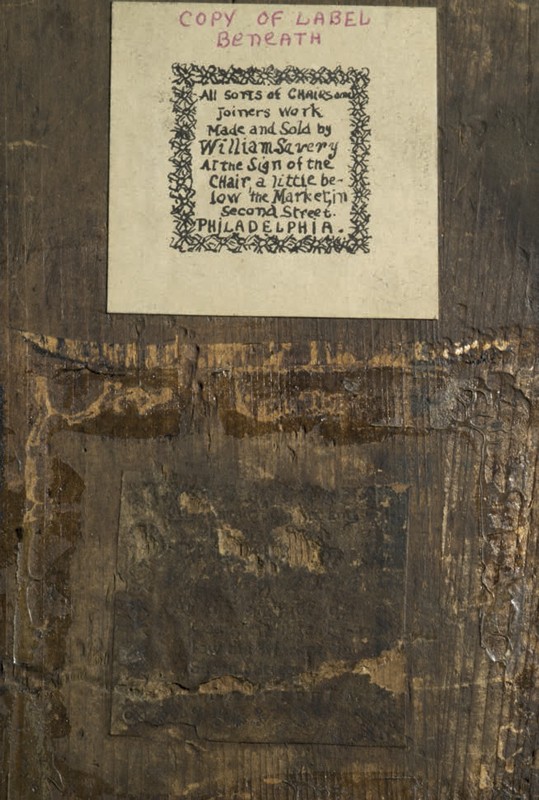 COPY OF LABEL
BENEATH
All sorts of CHAirs and
Joiners work
Made and Sold by
William Savery
At the Sign of the
CHair, a little be-
low the Market, in
Second Street.
PHiLADELPHIA.